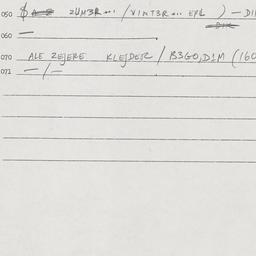 050 $ ZUM3R... / VINT3R... EPL ) — DI
060 —
070 ALE ZEJERE KLEJDER / B3GO,DIM (160
071 — / —